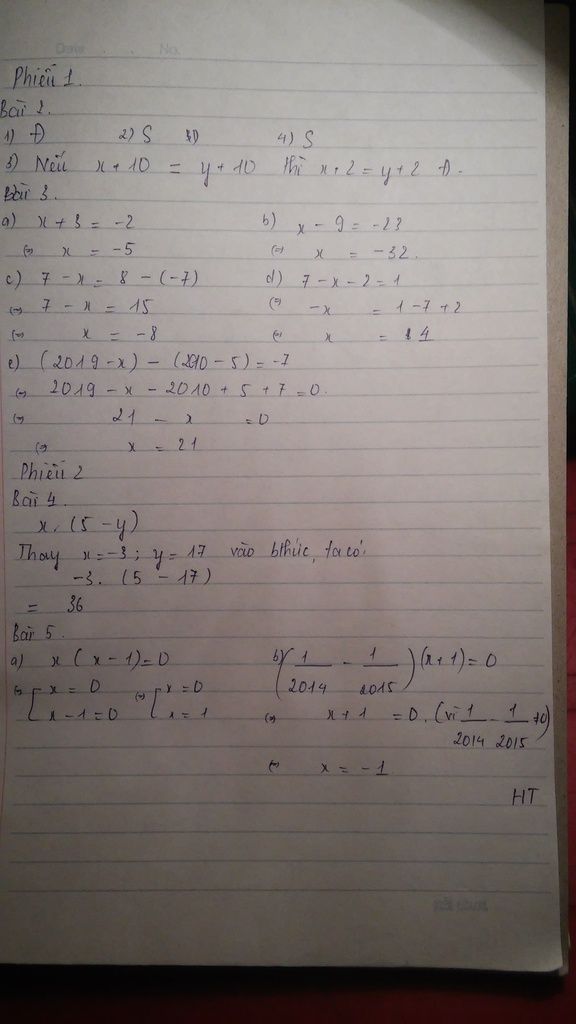 Phiếu 1.
Bài 2.
1) Đ 2) S 4) S
3) Nếu x + 10 = y + 10 thì x + 2 = y + 2 Đ.
Bài 3.
a) x + 3 = -2 b) x - 9 = -23
(=) x = -5 (=) x = -32.
c) 7 - x = 8 - (-7) d) 7 - x - 2 = 1
(=) 7 - x = 15 (=) -x = 1 - 7 + 2
(=) x = -8 (=) x = 4
e) (2019 - x) - (2010 - 5) = -7
(=) 2019 - x - 2010 + 5 + 7 = 0.
(=) 21 - x = 0
(=) x = 21
Phiếu 2
Bài 4.
x. (5 - y)
Thay x = -3 ; y = 17 vào bthức, ta có:
-3. (5 - 17)
= 36
Bài 5.
a) x ( x - 1) = 0 b) (1/2014 - 1/2015) (x + 1) = 0
(=) [x = 0 (=) [x = 0
x - 1 = 0 x = 1 (=) x + 1 = 0. (vì 1/2014 - 1/2015 ≠ 0)
(=) x = -1
HT